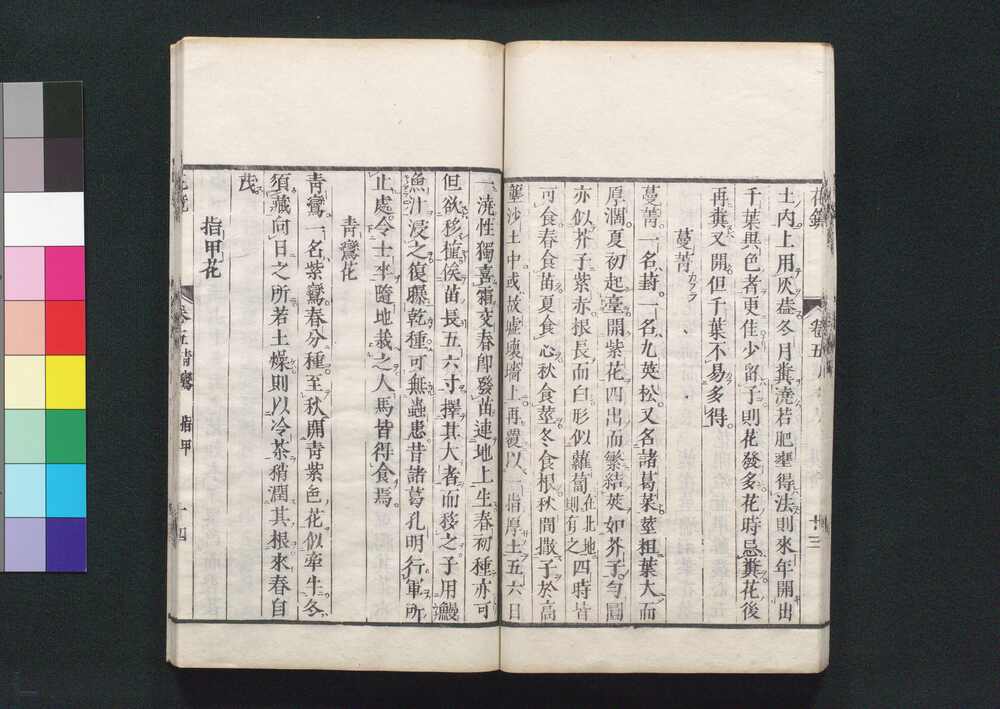 花鏡 卷五 十三
土内上用灰蓋冬月糞澆若肥壅得法則來年開出
千葉異色者更佳少留子則花發多花時忌糞花後
再糞又開但千葉不易多得。
蔓菁 カブラ
蔓菁一名葑。一名九英松。又名諸葛菜莖粗葉大而
厚濶。夏初起臺開紫花四出而繁結莢如芥子。勻圓
亦似芥子紫赤根長而白形似蘿蔔在北地則有之四時皆
可食春食苗夏食心秋食莖冬食根秋間撒子於高
壟沙土中或故墟壞墻上再覆以一指厚土五六日
一澆性獨喜霜交春卽發苗連地上生春初種亦可
但欲移植俟苗長五六寸擇其大者而移之子用鰻
魚汁浸之復曝乾種可無蟲患昔諸葛孔明行軍所
止處。令士卒隨地栽之人馬皆得食焉。
青鸞花
青鸞一名紫鸞春分種至秋開靑紫色花似牽牛冬
須藏向日之所若土燥則以冷茶稍潤其根來春自
茂
指甲花
卷五 靑鸞 指甲 十四